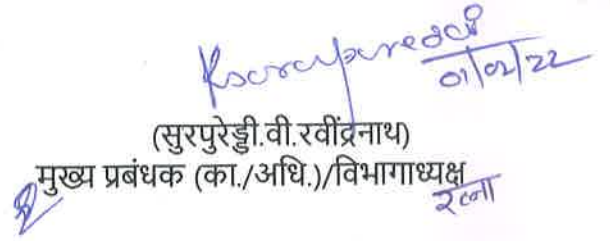 01/02/22
(सुरपुरेड्डी.वी.रवींद्रनाथ)
मुख्य प्रबंधक (का./अधि.)/विभागाध्यक्ष